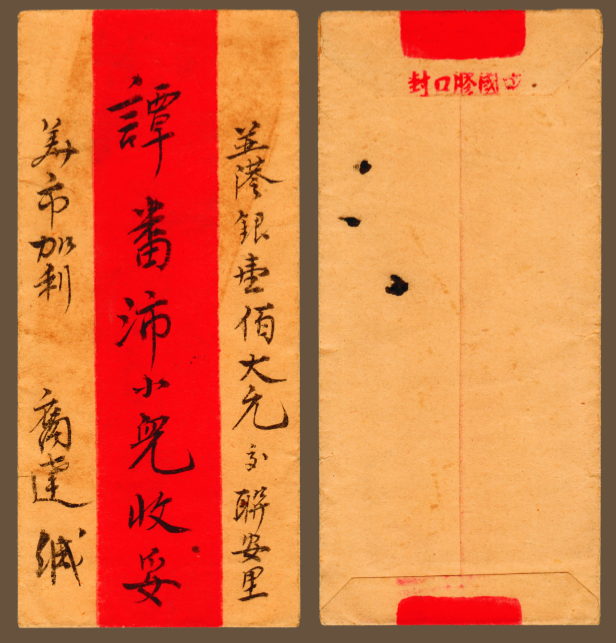 並港銀壹佰大元交聯安里
譚番沛小兒收妥
美市加利 喬達缄
中國膠口封